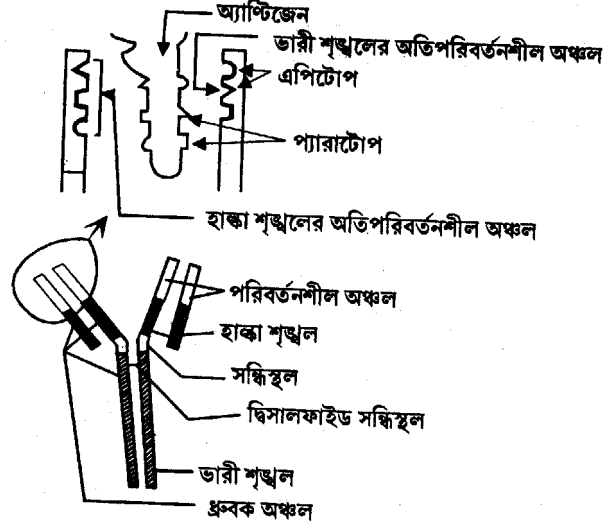 অ্যাণ্টিজেন
ভারী শৃঙ্খলের অতিপরিবর্তনশীল অঞ্চল
এপিটোপ
প্যারাটোপ
হাল্কা শৃঙ্খলের অতিপরিবর্তনশীল অঞ্চল
পরিবর্তনশীল অঞ্চল
হাল্কা শৃঙ্খল
সন্ধিস্থল
দ্বিসালফাইড সন্ধিস্থল
ভারী শৃঙ্খল
ধ্রুবক অঞ্চল